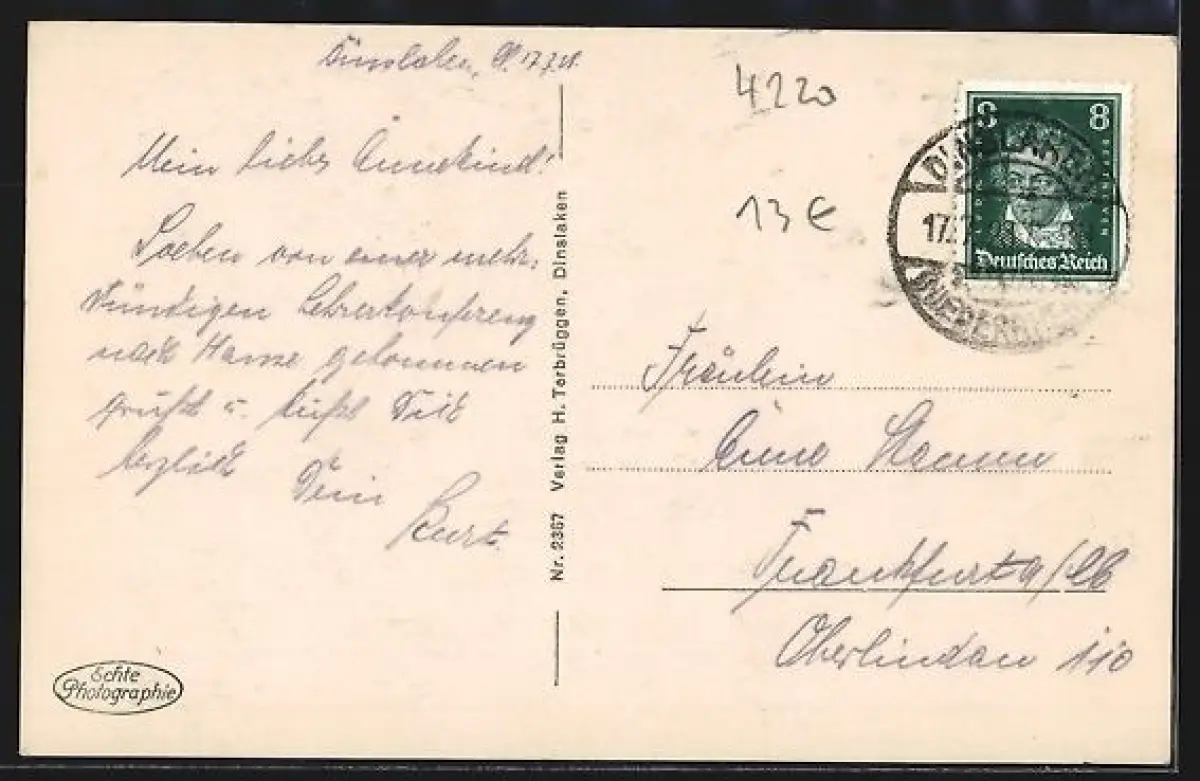 Dinslaken, 17.7.28.
Mein liebes Annekind!
Soeben von einer mehr-
stündigen Lehrerkonferenz
nach Hause gekommen
grüßt u. küßt Dich
herzlich Dein
Kurt.
Echte
Photographie
Nr. 2367 Verlag H. Terbrüggen, Dinslaken
4220
13 €
8 8
Deutsches Reich
DINSLAKEN
17.
Fräulein
Anne
Frankfurt a/
Oberlindau 110